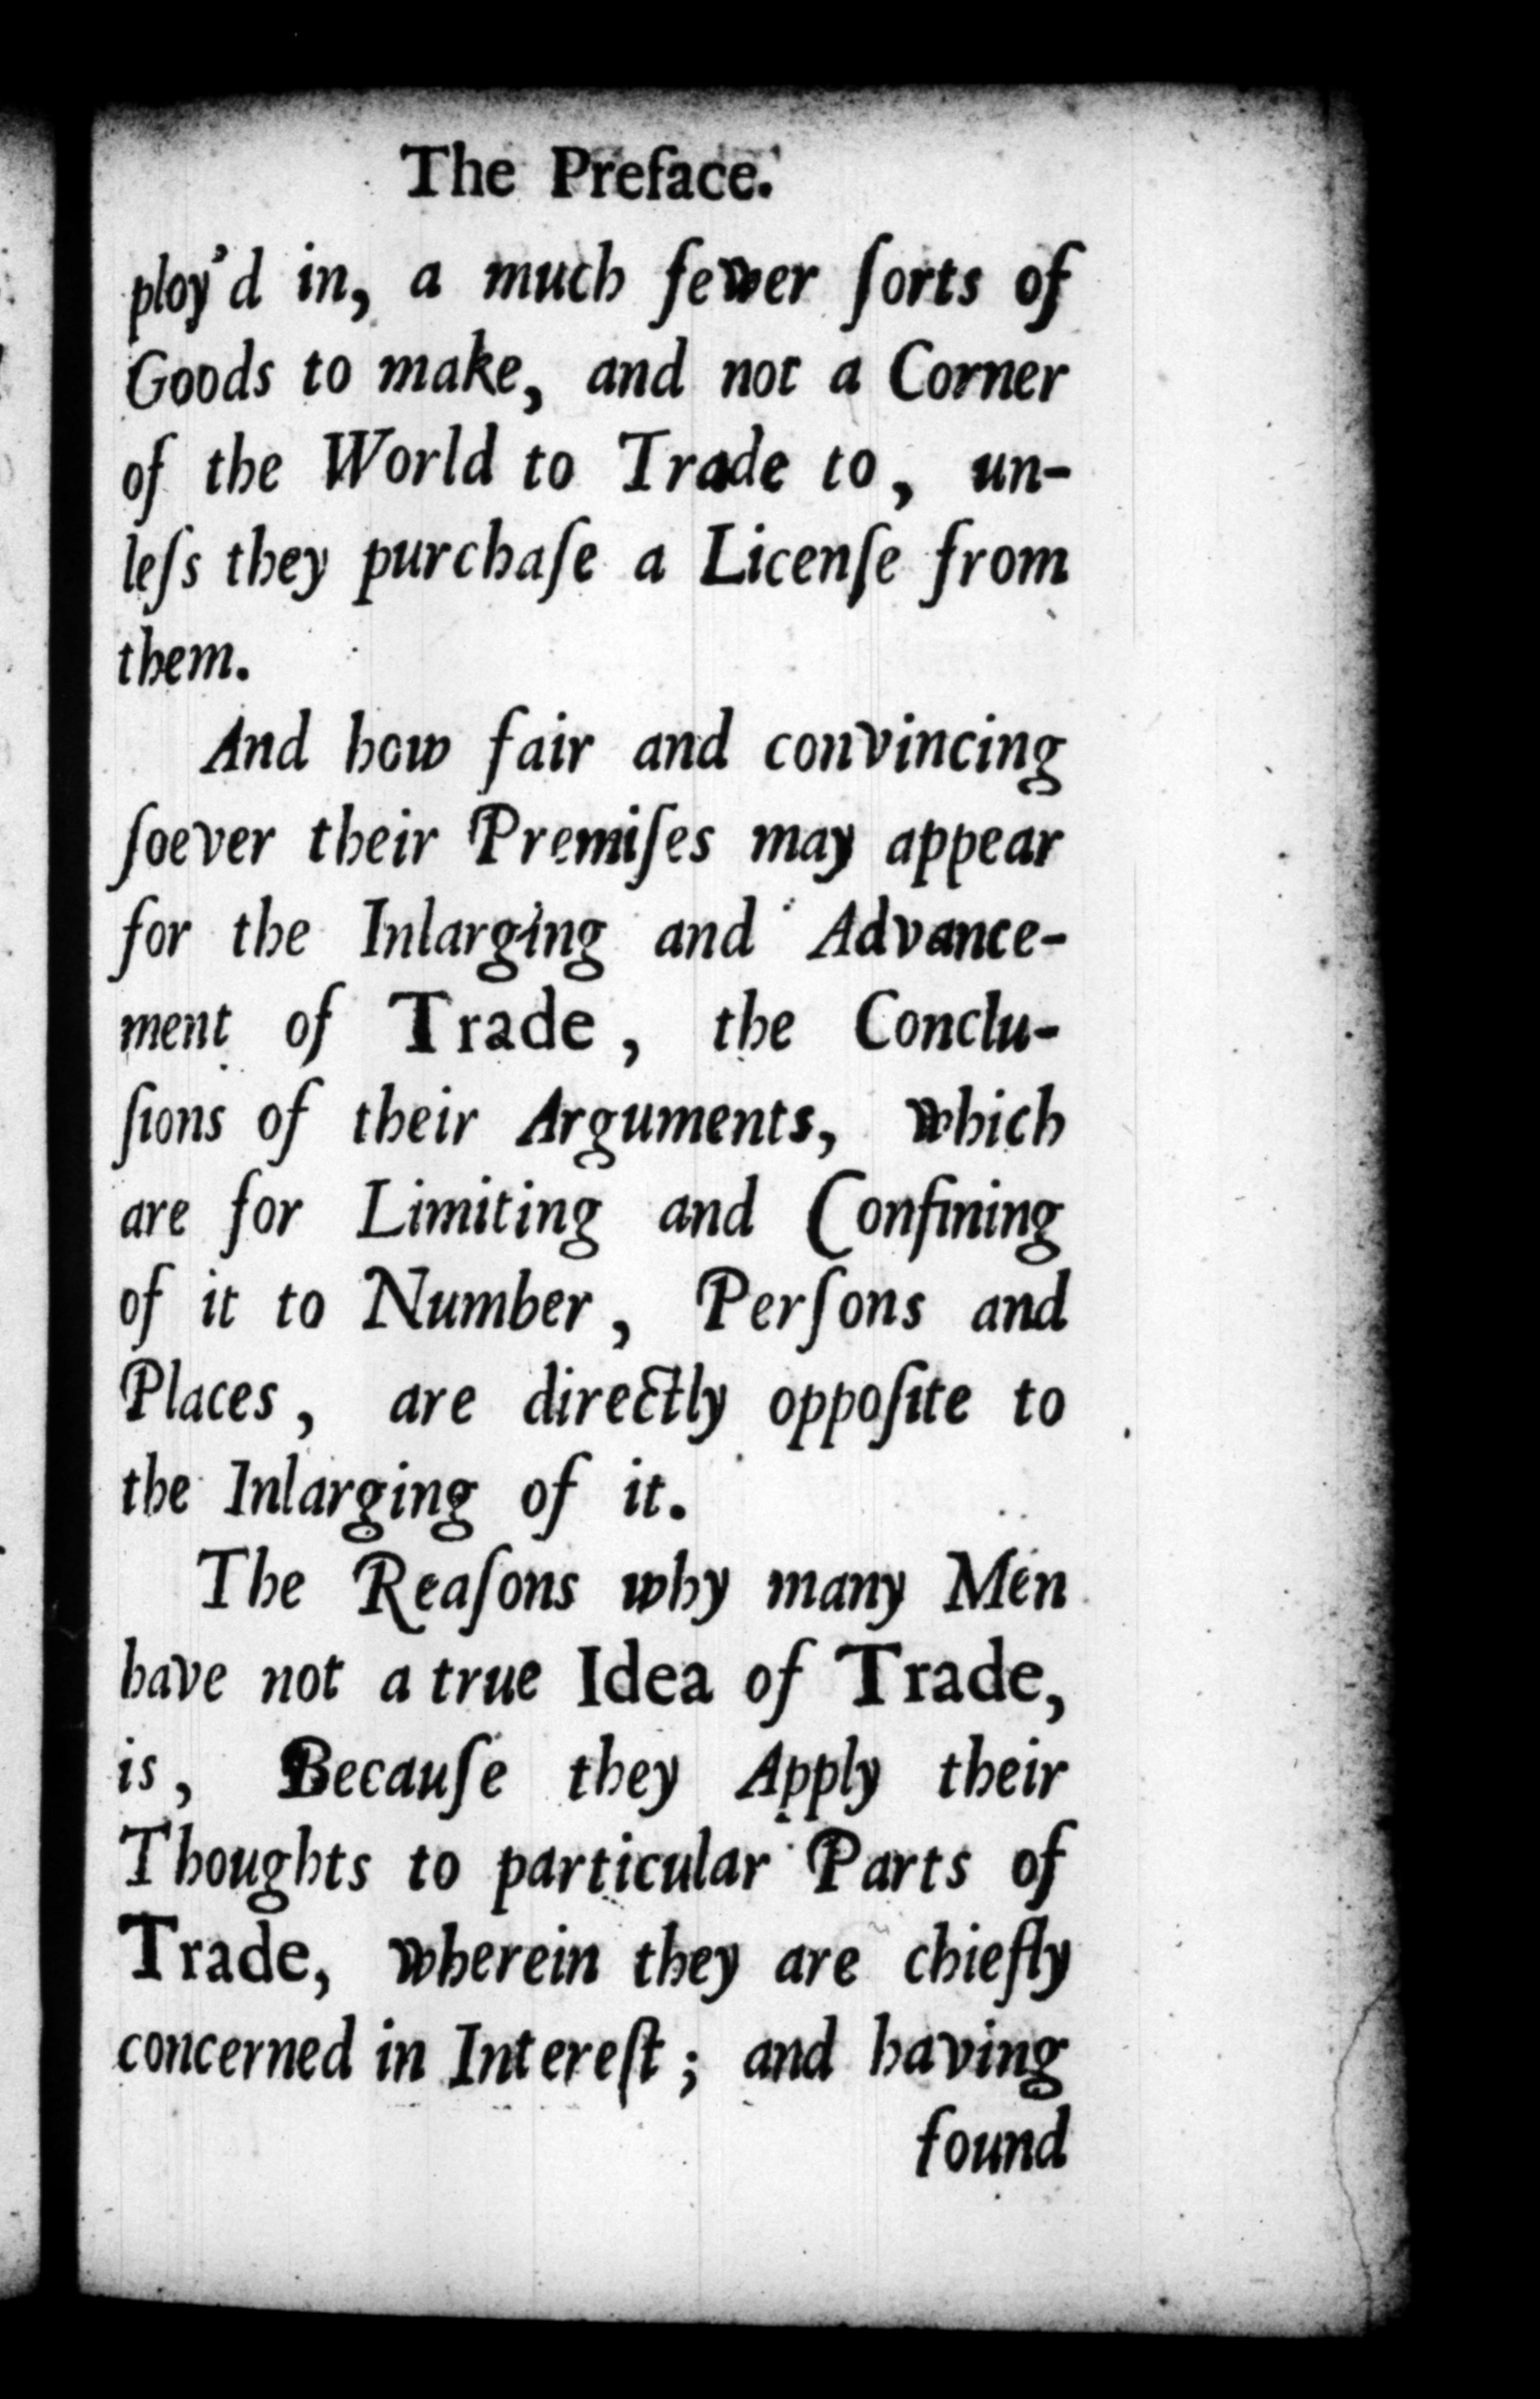 The Preface.
ploy'd in, a much fewer ſorts of
Goods to make, and not a Corner
of the World to Trade to, un-
leſs they purchaſe a Licenſe from
them.
And how fair and convincing
ſoever their Premiſes may appear
for the Inlarging and Advance-
ment of Trade, the Conclu-
ſions of their Arguments, which
are for Limiting and Confining
of it to Number, Perſons and
Places, are directly oppoſite to
the Inlarging of it.
The Reaſons why many Men
have not a true Idea of Trade,
is, Becauſe they Apply their
Thoughts to particular Parts of
Trade, wherein they are chiefly
concerned in Intereſt; and having
found